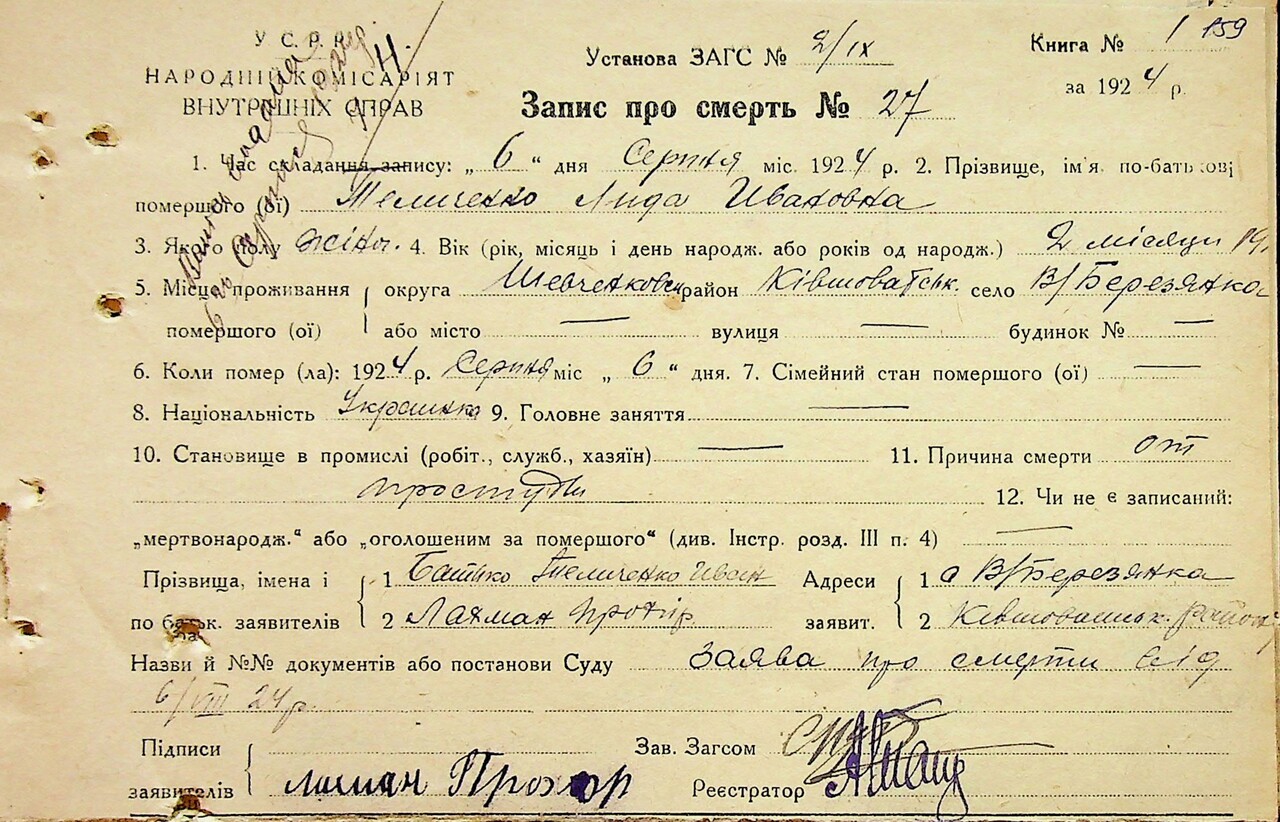 У.С.Р.Р.
НАРОДНІЙ КОМІСАРІЯТ
ВНУТРІШНІХ СПРАВ
Установа ЗАГС № 2/ІХ
Книга № 1 159
за 1924 р.
Запис про смерть № 27
1. Час складання запису: „ 6 “ дня Серпня міс. 1924 р. 2. Прізвище, ім'я по-батькові
помершого (ої) Теличенко Лида Ивановна
3. Якого полу жіноч. 4. Вік (рік, місяць і день народж. або років од народж.) 2 місяци
5. Місце проживання округа Шевченковск район Ківшоватськ. село В/Березянка
помершого (ої) або місто — вулиця — будинок № —
6. Коли помер (ла): 1924 р. Серпня міс „ 6 “ дня. 7. Сімейний стан помершого (ої) —
8. Національність Украинка 9. Головне заняття —
10. Становище в промислі (робіт., служб., хазяїн) — 11. Причина смерти от
простуди 12. Чи не є записаний:
„мертвонародж.“ або „оголошеним за помершого“ (див. Інстр. розд. III п. 4) —
Прізвища, імена і 1 Батько Теличенко Иван Адреси 1 с В/Березянка
по батьк. заявителів 2 Прохір. заявит. 2 Ківшоватськ. району
Назви й №№ документів або постанови Суду Заява про смерти від
6/VIII 24 р.
Підписи Зав. Загсом
заявителів Прохор Реєстратор